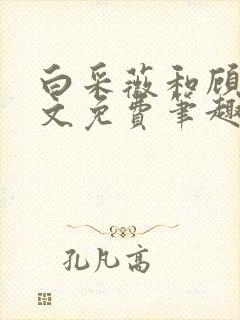 白采薇和顾
文免费笔趣
孔凡高